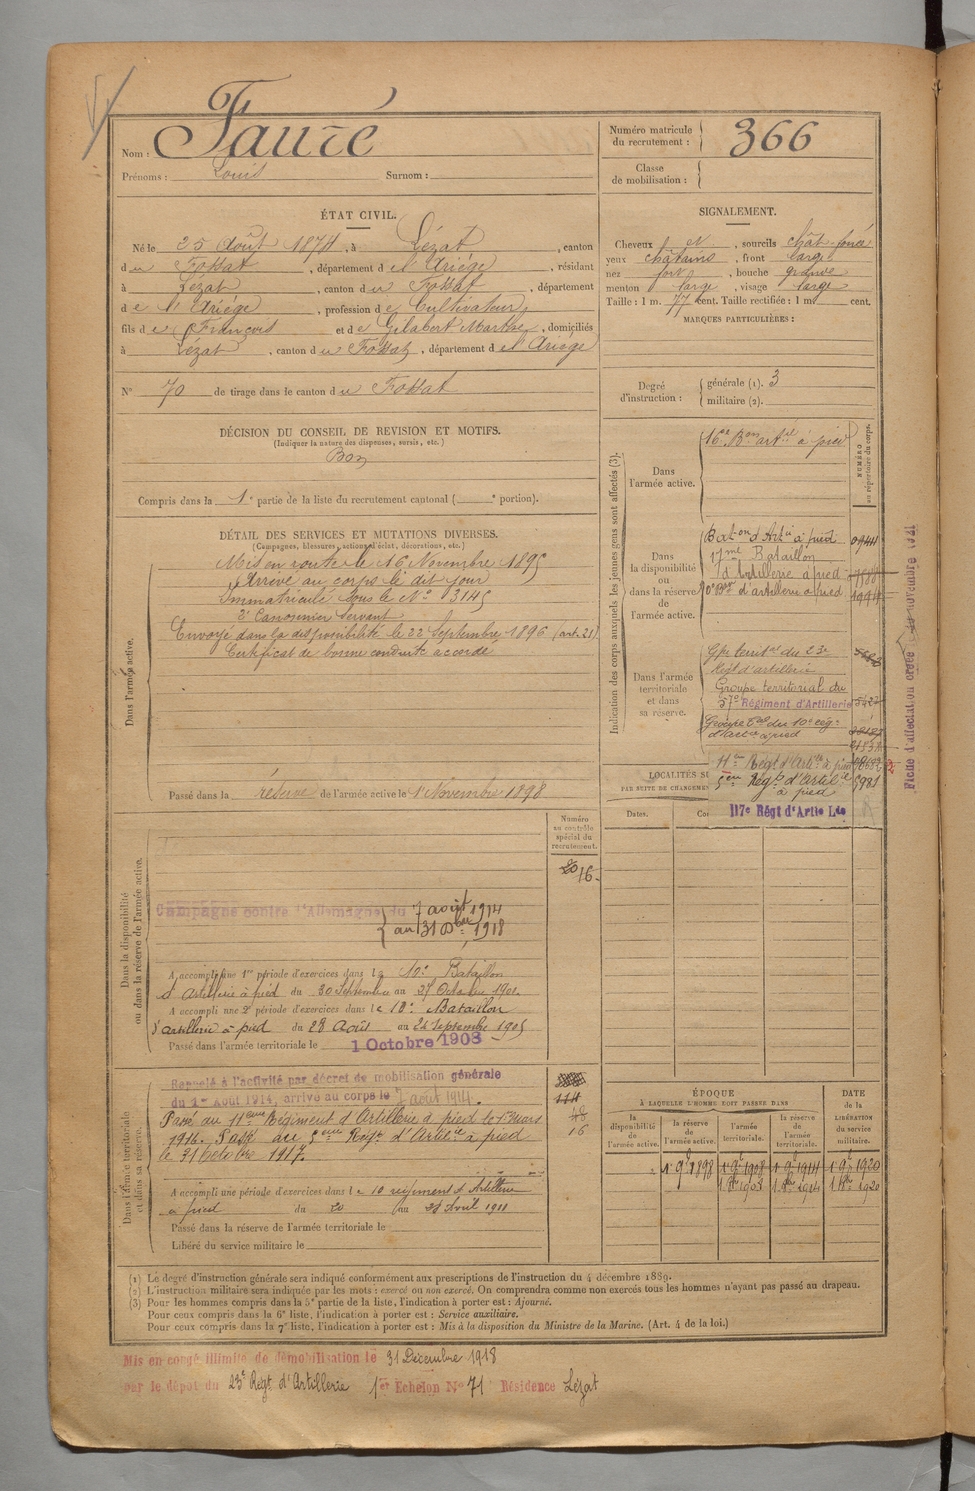 Nom : Fauré
Prénoms : Louis Surnom :
Numéro matricule du recrutement : 366
Classe de mobilisation :
ÉTAT CIVIL.
Né le 25 Août 1874, à Lézat, canton
du Fossat, département de l'Ariége, résidant
à Lézat, canton du Fossat, département
de l'Ariége, profession de Cultivateur,
fils de François et de Gilabert Marthe, domiciliés
à Lézat, canton du Fossat, département de l'Ariége
N° 70 de tirage dans le canton du Fossat
SIGNALEMENT.
Cheveux et, sourcils chât. foncé
yeux châtains, front large
nez fort, bouche grande
menton large, visage large
Taille : 1 m. 77 cent. Taille rectifiée : 1 m cent.
MARQUES PARTICULIÈRES :
Degré d'instruction : générale (1). 3
militaire (2).
DÉCISION DU CONSEIL DE REVISION ET MOTIFS.
(Indiquer la nature des dispenses, sursis, etc.)
Bon
Compris dans la 1e partie de la liste du recrutement cantonal ( e portion).
DÉTAIL DES SERVICES ET MUTATIONS DIVERSES.
(Campagnes, blessures, actions d'éclat, décorations, etc.)
Dans l'armée active.
Mis en route le 16 Novembre 1895
Arrivé au corps le dit jour
Immatriculé sous le N° 3145
2e Canonnier servant
Envoyé dans la disponibilité le 22 Septembre 1896 (art. 21)
Certificat de bonne conduite accordé
Passé dans la réserve de l'armée active le 1 Novembre 1898
Indication des corps auxquels les jeunes gens sont affectés (3).
NUMÉRO au répertoire du corps.
Dans l'armée active.
16e Bon artie à pied
Dans la disponibilité ou dans la réserve de l'armée active.
Bat-on d'Artie à pied
17me Bataillon
d'Artillerie à pied
10e Bon d'artillerie à pied
Dans l'armée territoriale et dans sa réserve.
Gpe territal du 23e
Régt d'artillerie
Groupe territorial du
57e Régiment d'Artillerie
Groupe tal du 10e rég.
d'artie à pied
11me Régt d'Artie à pied
5me Régt d'Artie à pied 5981
117e Régt d'Artie Lde
LOCALITÉS
PAR SUITE DE CHANGEMEN
Dates.
Fiche d'affectation novembre 1921
Numéro au contrôle spécial du recrutement.
16
Dans la disponibilité ou dans la réserve de l'armée active.
Campagne contre l'Allemagne du 7 août 1914
au 31 Dbre 1918
A accompli une 1re période d'exercices dans le 10e Bataillon
d'Artillerie à pied du 30 Septembre au 27 Octobre 1901
A accompli une 2e période d'exercices dans le 18e Bataillon
d'artillerie à pied du 28 Août au 24 Septembre 1905
Passé dans l'armée territoriale le 1 Octobre 1908
Dans l'armée territoriale et dans sa réserve.
Rappelé à l'activité par décret de mobilisation générale
du 1er Août 1914, arrivé au corps le 7 août 1914.
Passé au 11eme Régiment d'Artillerie à pied le 1er mars
1916. Passé au 5eme Regt d'Artie à pied
le 31 Octobre 1917.
A accompli une période d'exercices dans le 10 régiment d'Artillerie
à pied du 20 au 28 Avril 1911
Passé dans la réserve de l'armée territoriale le
Libéré du service militaire le
114
48
16
ÉPOQUE
À LAQUELLE L'HOMME DOIT PASSER DANS
la disponibilité de l'armée active.
la réserve de l'armée active.
l'armée territoriale.
la réserve de l'armée territoriale.
DATE de la LIBÉRATION du service militaire.
1er 9bre 1898 1er 9bre 1908 1er 9bre 1914 1er 9bre 1920
1 8bre 1908 1 8bre 1914 1 8bre 1920
(1) Le degré d'instruction générale sera indiqué conformément aux prescriptions de l'instruction du 4 décembre 1889.
(2) L'instruction militaire sera indiquée par les mots : exercé ou non exercé. On comprendra comme non exercés tous les hommes n'ayant pas passé au drapeau.
(3) Pour les hommes compris dans la 5e partie de la liste, l'indication à porter est : Ajourné.
Pour ceux compris dans la 6e liste, l'indication à porter est : Service auxiliaire.
Pour ceux compris dans la 7e liste, l'indication à porter est : Mis à la disposition du Ministre de la Marine. (Art. 4 de la loi.)
Mis en congé illimité de démobilisation le 31 Décembre 1918
par le dépôt du 23e Régt d'Artillerie 1er Echelon N° 71 Résidence Lézat